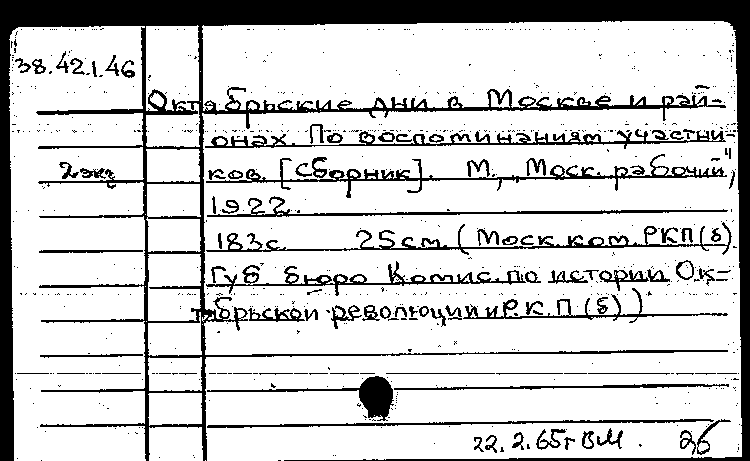 38.42.1.46
Октябрьские дни в Москве и рай-
онах. По воспоминаниям участни-
2 экз
ков. [Сборник]. М., „Моск. рабочий",
1922.
183 с. 25 см. (Моск. ком. РКП(б)
Губ бюро Комис. по истории Ок-
тябрьской революции и Р.К.П (б))
22.2.65г ВМ. 26